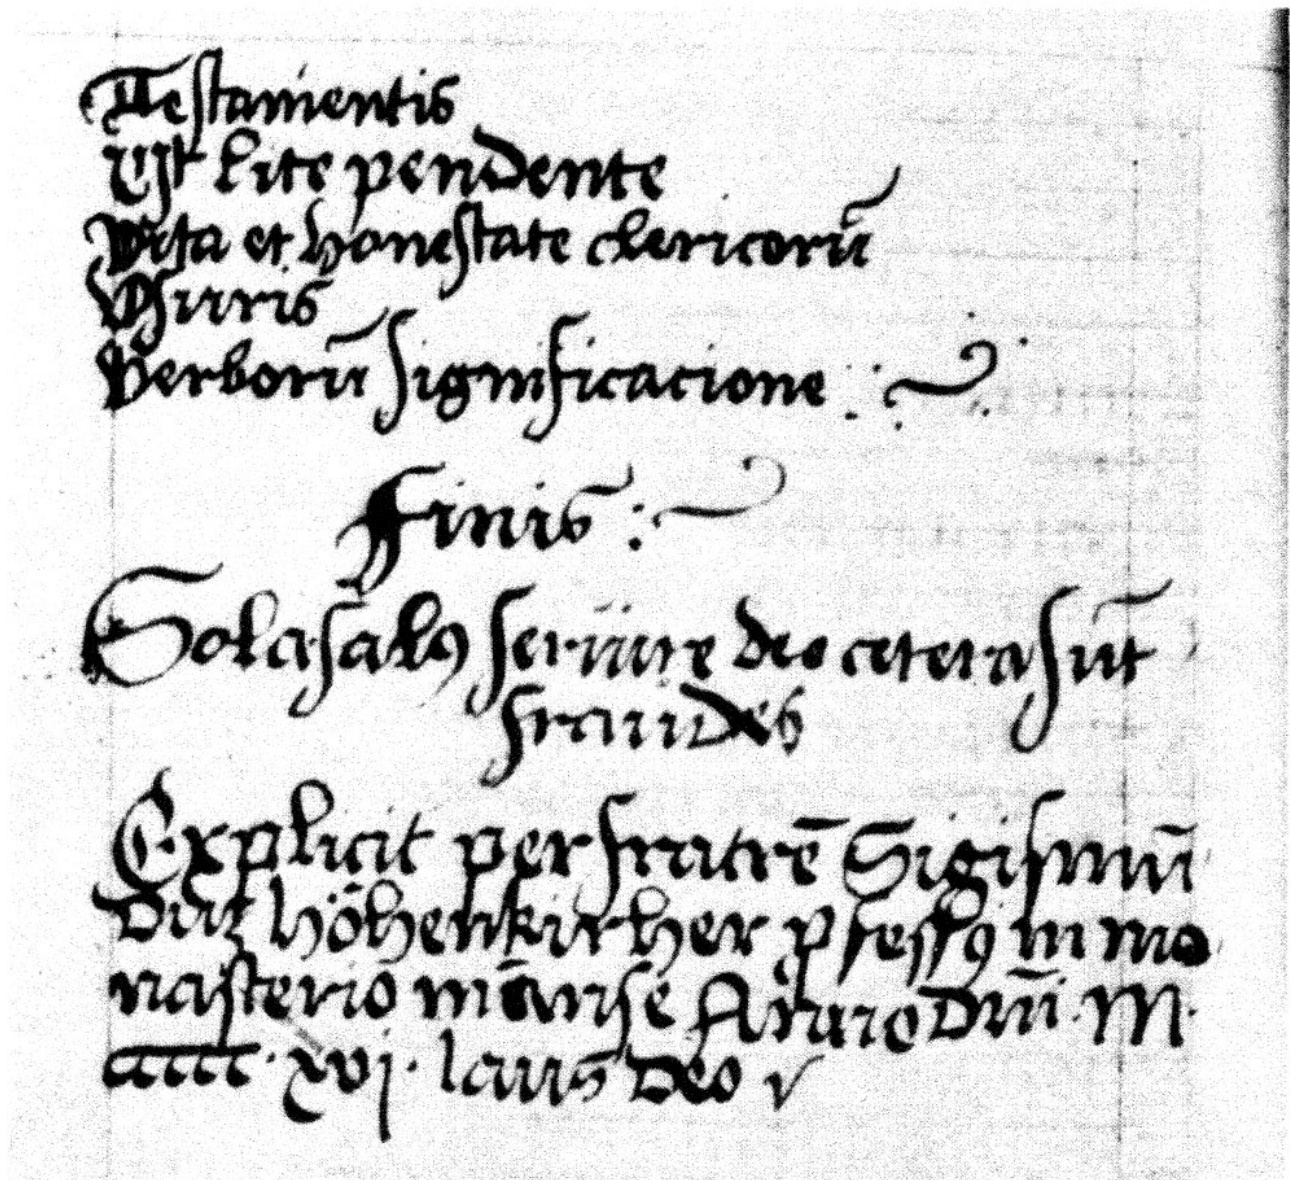 Testamentis
Ut lite pendente
Vita et honestate clericorū
Vsuris
Verborū significacione
Finis :
Sola salꝰ seruire deo cetera sūt
fraudes
Explicit per fratrē Sigismū
dūt höhenkircher ꝓfessꝰ in mo
nasterio Anno Dnī · M ·
cccc · xvj · laus deo